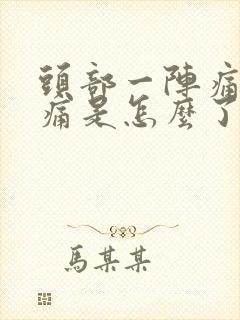 頭部一陣痛
痛是怎麼了
馬某某